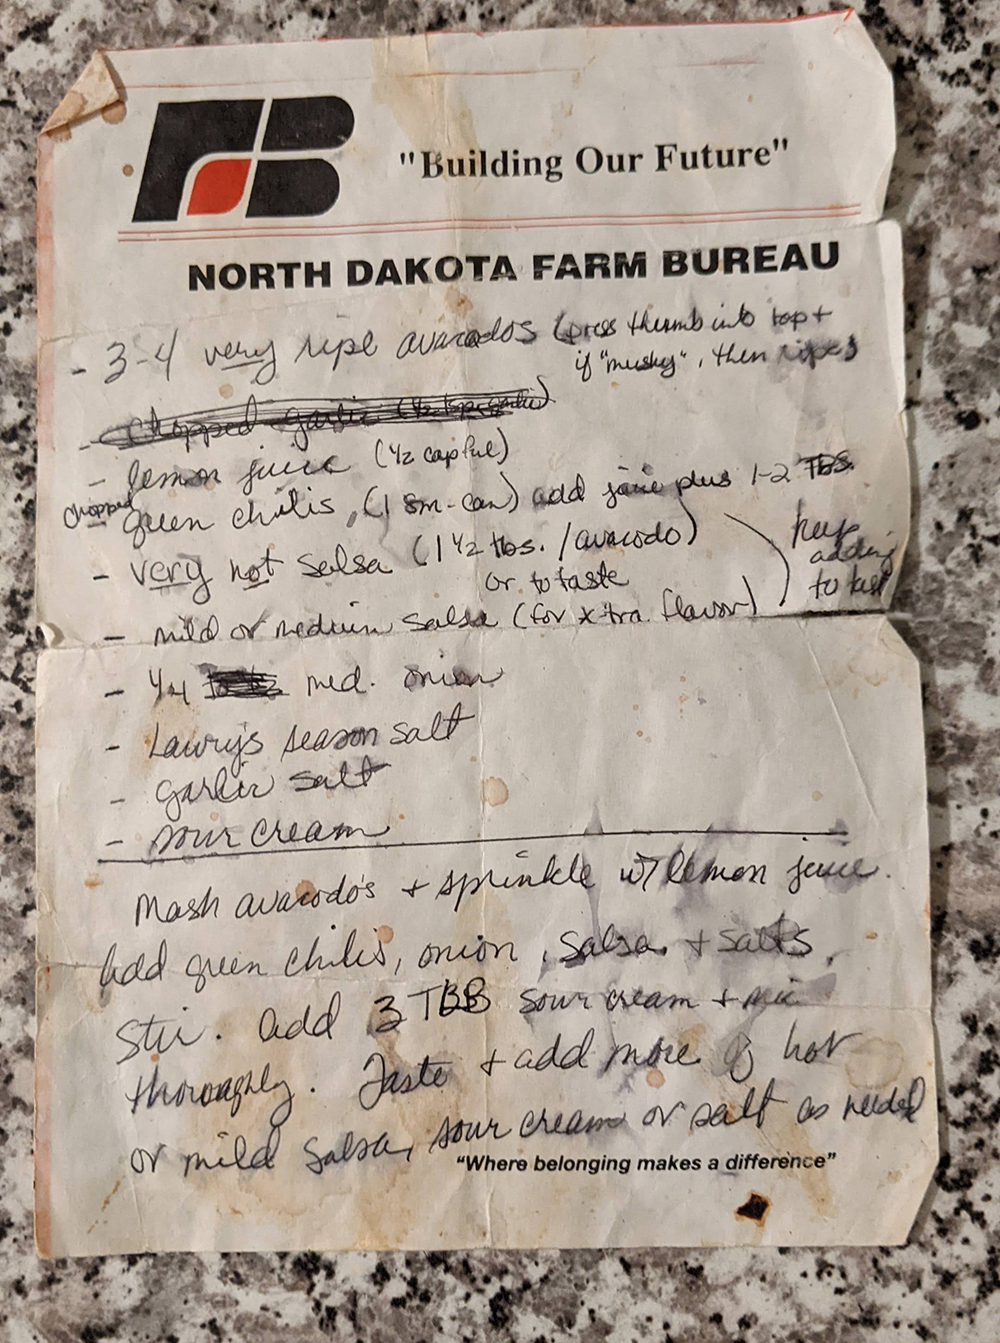 FB
"Building Our Future"
NORTH DAKOTA FARM BUREAU
- 3-4 very ripe avacados (press thumb into top +
if "mushy", then ripe)
- chopped garlic (1/2 tsp garlic)
- lemon juice (1/2 capful)
chopped green chilis, (1 sm. can) add juice plus 1-2 TBS.
- very hot salsa (1 1/2 tbs. /avacodo)
or to taste
keep
adding
to taste
- mild or medium salsa (for x-tra flavor)
- 1/4 med. onion
- Lawry's season salt
- garlic salt
- sour cream
Mash avacodo's + sprinkle w/ lemon juice.
Add green chilis, onion, salsa, + salts.
Stir. Add 3 TBB sour cream + mix
thoroughly. Taste + add more of hot
or mild salsa, sour cream or salt as needed
"Where belonging makes a difference"